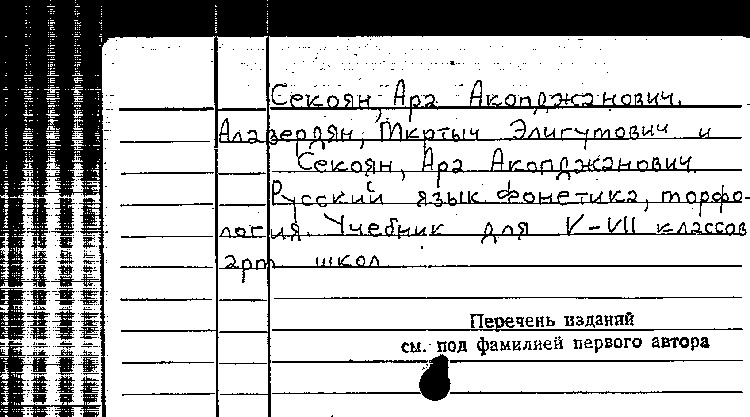 Секоян, Ара Акопджанович.
Алавердян, Мкртыч Элигумович и
Секоян, Ара Акопджанович.
Русский язык. Фонетика, морфо-
логия. Учебник для V-VII классов
арм школ
Перечень изданий
см. под фамилией первого автора